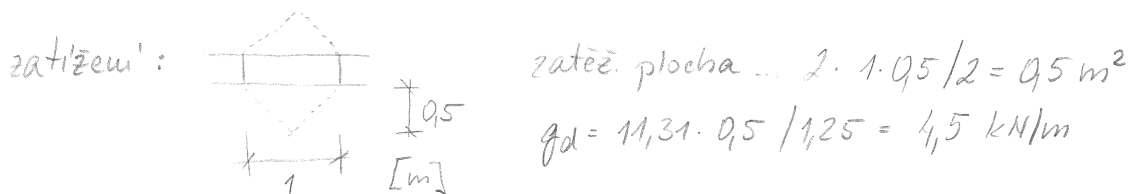 zatížení :
zatěž. plocha ... 2 · 1 · 0,5 / 2 = 0,5 m²
gd = 11,31 · 0,5 / 1,25 = 4,5 kN/m
0,5
[m]
1